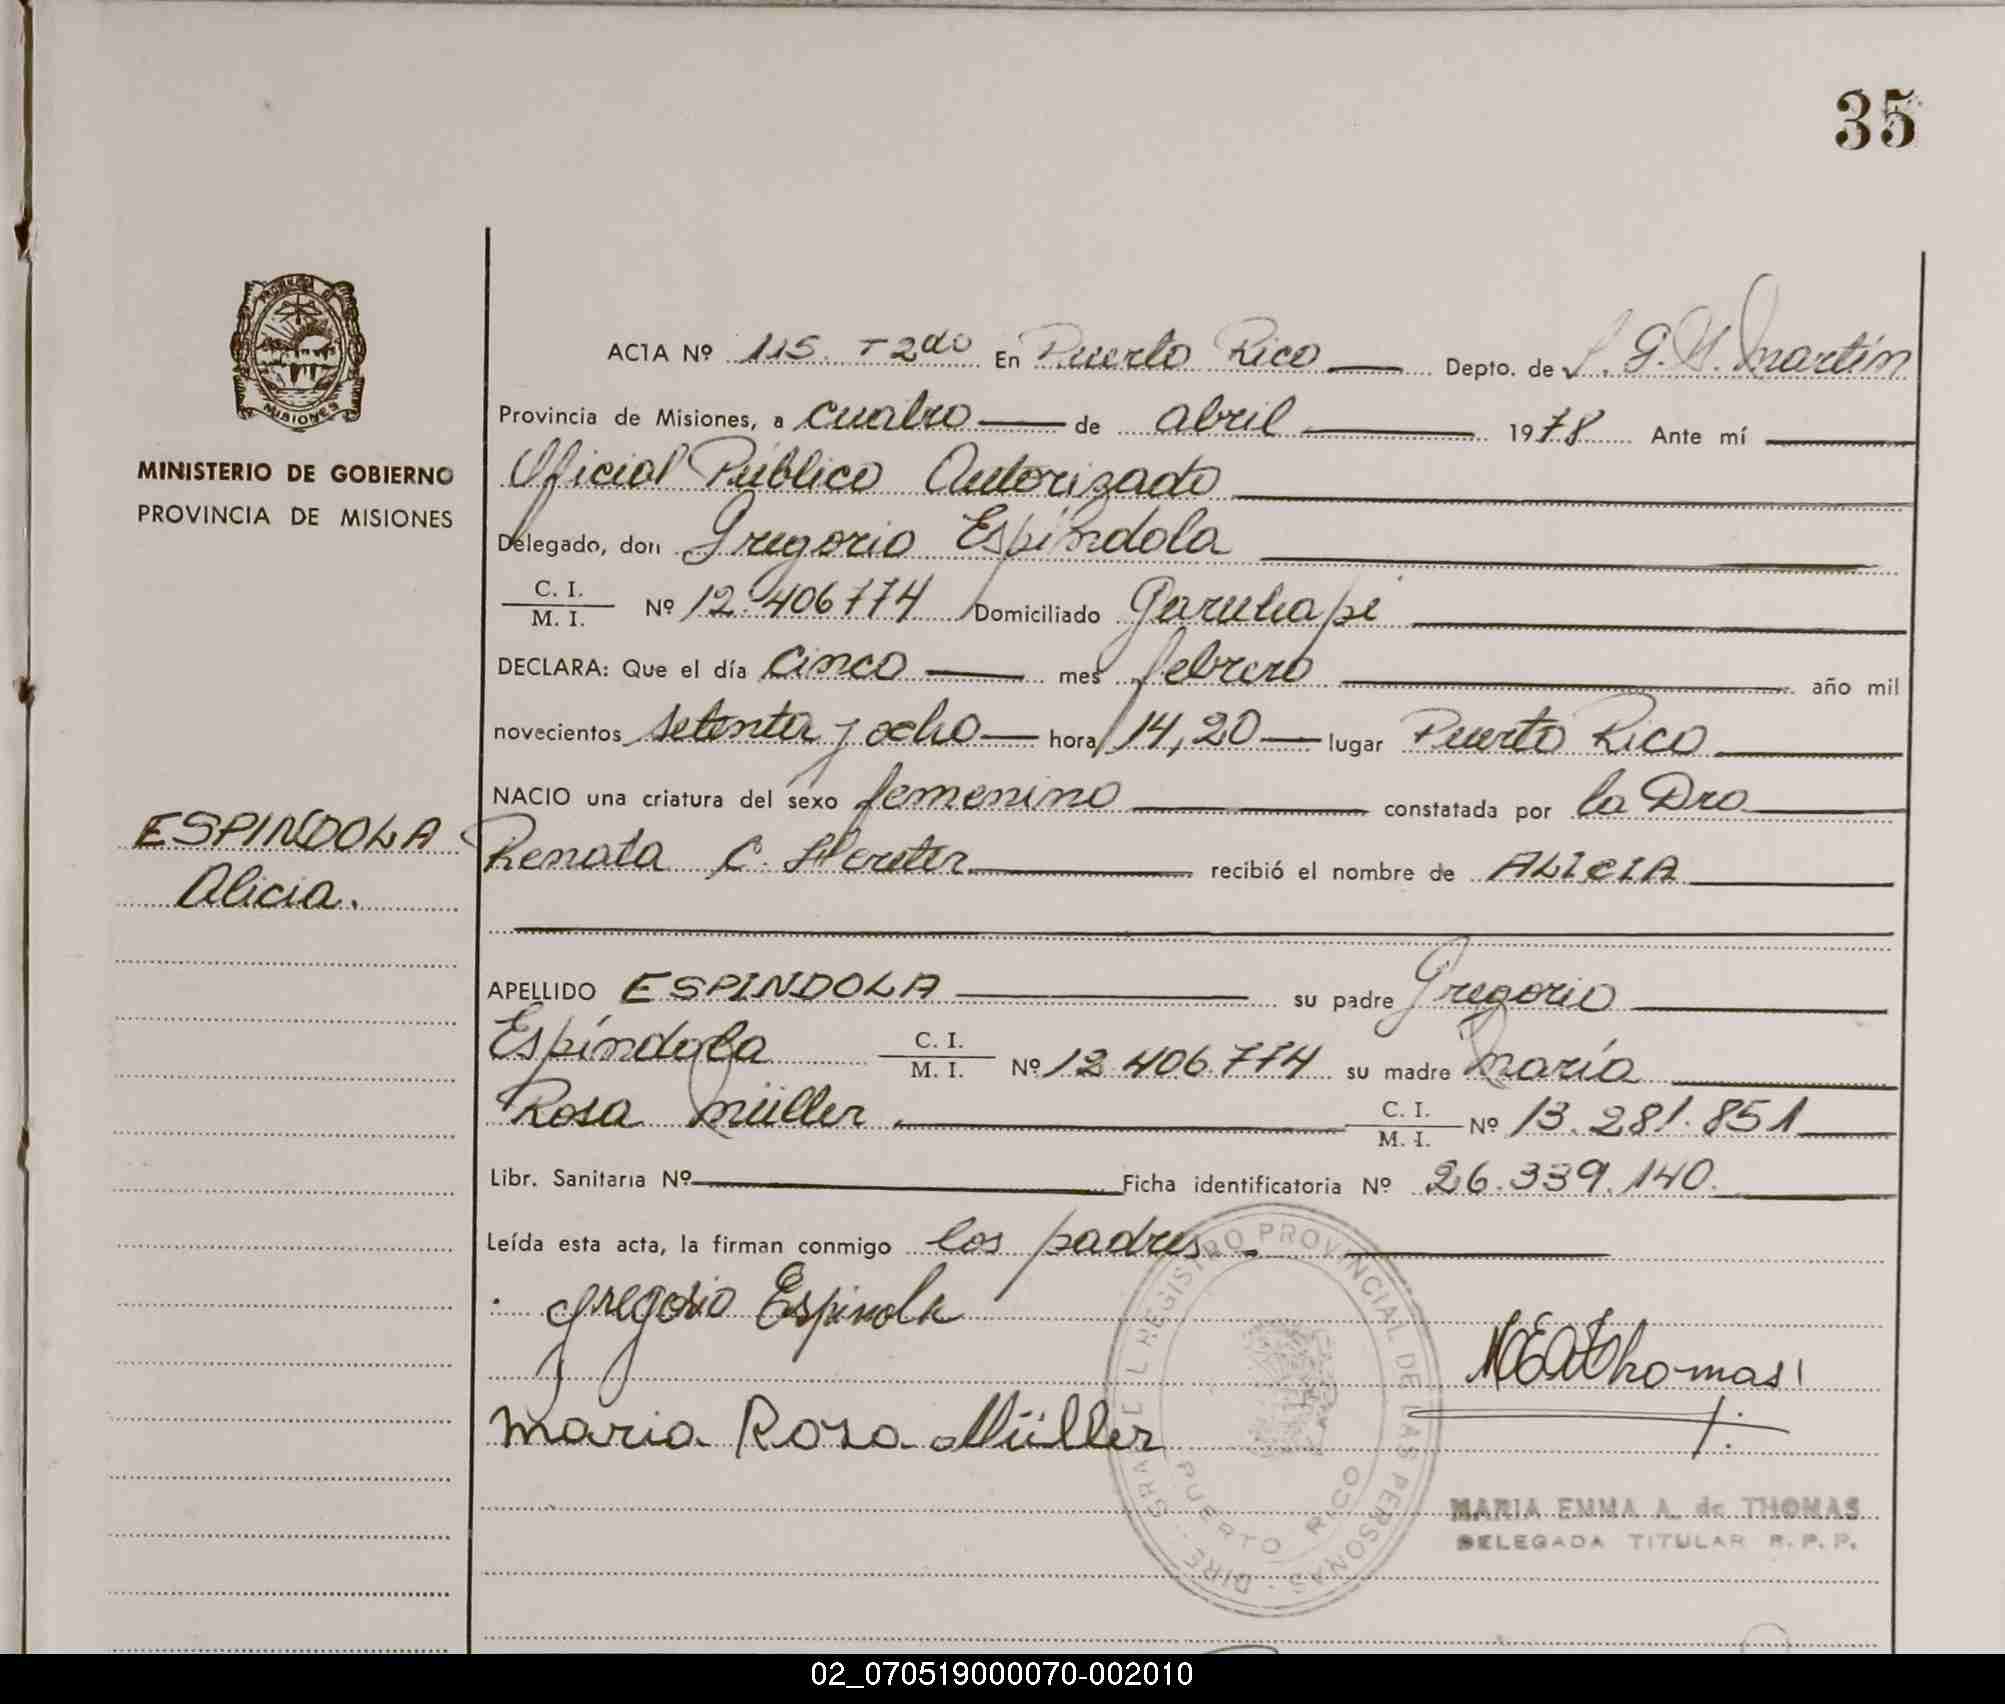 35
MISIONES
MINISTERIO DE GOBIERNO
PROVINCIA DE MISIONES
ESPINDOLA
Alicia.
ACTA Nº 115. T 2do En Puerto Rico Depto. de L. G. S. Martín
Provincia de Misiones, a cuatro de abril 1978 Ante mí
Oficial Público Autorizado
Delegado, don Gregorio Espíndola
C. I.
M. I. Nº 12.406774 Domiciliado Garuhapé
DECLARA: Que el día cinco mes febrero año mil
novecientos setenta y ocho hora 14,20 lugar Puerto Rico
NACIO una criatura del sexo femenino constatada por la Dra
Renata C. recibió el nombre de ALICIA
APELLIDO ESPINDOLA su padre Gregorio
Espíndola C. I.
M. I. Nº 12.406.774 su madre María
Rosa Müller C. I.
M. I. Nº 13.281.851
Libr. Sanitaria Nº Ficha identificatoria Nº 26.339.140.
Leída esta acta, la firman conmigo los padres.
gregorio Espinola
MEAThomas
maria Rosa Müller
DIRE. GRAL. DEL REGISTRO PROVINCIAL DE LAS PERSONAS
PUERTO RICO
MARIA EMMA A. de THOMAS
DELEGADA TITULAR R. P. P.
02_070519000070-002010